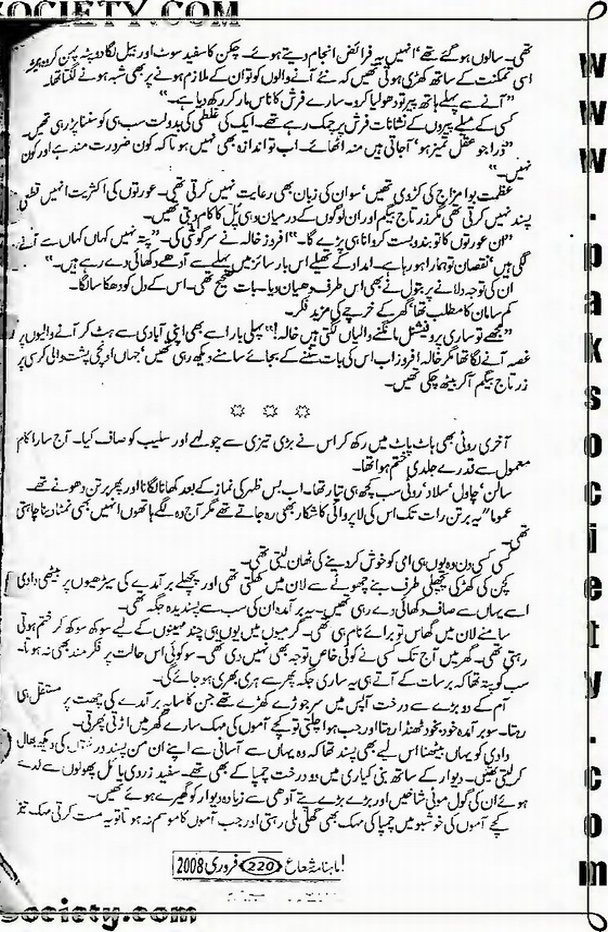 SOCIETY.COM
تھی۔ سالوں ہو گئے تھے‘ انہیں یہ فرائض انجام دیتے ہوئے۔ چکن کا سفید سوٹ اور بیل لگا دوپٹہ پہن کر وہ ہمیشہ
اسی تمکنت کے ساتھ کھڑی ہوتی تھیں کہ نئے آنے والوں کو تو ان کے ملازم ہونے پر بھی شبہ ہونے لگتا تھا۔
”آنے سے پہلے ہاتھ پیر تو دھو لیا کرو۔ سارے فرش کا ناس مار کر رکھ دیا ہے۔“
کسی کے میلے پیروں کے نشانات فرش پر چمک رہے تھے۔ ایک کی غلطی کی بدولت سب ہی کو سننا پڑ رہی تھیں۔
”ذرا جو عقل تمیز ہو‘ آجاتی ہیں منہ اٹھائے۔ اب تو اندازہ بھی نہیں ہوتا کہ کون ضرورت مند ہے اور کون
نہیں۔“
عظمت بوا مزاج کی کڑوی تھیں‘ سو ان کی زبان بھی رعایت نہیں کرتی تھی۔ عورتوں کی اکثریت انہیں قطعی
پسند نہیں کرتی تھی مگر زرتاج بیگم اور ان لوگوں کے درمیان وہی پُل کا کام دیتی تھیں۔
”ان عورتوں کا تو بندوبست کروانا ہی پڑے گا۔“ افروز خالہ نے سرگوشی کی۔ ”پتہ نہیں کہاں کہاں سے آنے
لگی ہیں‘ نقصان تو ہمارا ہو رہا ہے۔ امداد کے تھیلے اس بار سائز میں پہلے سے آدھے دکھائی دے رہے ہیں۔“
ان کی توجہ دلانے پر بتول نے بھی اس طرف دھیان دیا۔ بات صحیح تھی۔ اس کے دل کو دھکا سا لگا۔
کم سامان کا مطلب تھا‘ گھر کے خرچے کی مزید فکر۔
”مجھے تو ساری پروفیشنل مانگنے والیاں لگتی ہیں خالہ!“ پہلی بار اسے بھی اپنی آبادی سے ہٹ کر آنے والیوں پر
غصہ آنے لگا تھا مگر خالہ افروز اب اس کی بات سننے کے بجائے سامنے دیکھ رہی تھیں‘ جہاں اونچی پشت والی کرسی پر
زرتاج بیگم آکر بیٹھ چکی تھیں۔
آخری روٹی بھی ہاٹ پاٹ میں رکھ کر اس نے بڑی تیزی سے چولہے اور سلیب کو صاف کیا۔ آج سارا کام
معمول سے قدرے جلدی ختم ہوا تھا۔
سالن‘ چاول‘ سلاد‘ روٹی سب کچھ ہی تیار تھا۔ اب بس ظہر کی نماز کے بعد کھانا لگانا اور پھر برتن دھونے تھے۔
عموماً یہ برتن رات تک اس کی لاپروائی کا شکار بھی رہ جاتے تھے مگر آج وہ لگے ہاتھوں انہیں بھی نمٹا دینا چاہتی
تھی۔
کسی کسی دن وہ یوں ہی امی کو خوش کر دینے کی ٹھان لیتی تھی۔
کچن کی کھڑکی پچھلی طرف بنے چھوٹے سے لان میں کھلتی تھی اور پچھلے برآمدے کی سیڑھیوں پر بیٹھی دادی
اسے یہاں سے صاف دکھائی دے رہی تھیں۔ یہ برآمدہ ان کی سب سے پسندیدہ جگہ تھی۔
سامنے لان میں گھاس تو برائے نام ہی تھی۔ گرمیوں میں یوں ہی چند مہینوں کے لیے سوکھ سوکھ کر ختم ہوتی
رہتی تھی۔ گھر میں آج تک کسی نے کوئی خاص توجہ بھی نہیں دی تھی۔ سو کوئی اس حالت پر فکر مند بھی نہ ہوتا۔
سب کو پتہ تھا کہ برسات کے آتے ہی یہ ساری جگہ پھر سے ہری بھری ہو جائے گی۔
آم کے دو بڑے سے درخت آپس میں سر جوڑے کھڑے تھے جن کا سایہ برآمدے کی چھت پر مستقل ہی
رہتا۔ سو برآمدہ خود بخود ٹھنڈا رہتا اور جب ہوا چلتی تو کچے آموں کی مہک سارے گھر میں اڑتی پھرتی۔
دادی کو یہاں بیٹھنا اس لیے بھی پسند تھا کہ وہ یہاں سے آسانی سے اپنے ان من پسند درختوں کی دیکھ بھال
کر لیتی تھیں۔ دیوار کے ساتھ بنی کیاری میں دو درخت چمپا کے بھی تھے۔ سفید زردی مائل پھولوں سے لدے
ہوئے ان کی گول موٹی شاخیں اور بڑے بڑے پتے آدھی سے زیادہ دیوار کو گھیرے ہوئے تھیں۔
کچے آموں کی خوشبو میں چمپا کی مہک بھی گھلی ملی رہتی اور جب آموں کا موسم نہ ہوتا تو یہ مست کرتی مہک تیز
ماہنامہ شعاع 220 فروری 2008
society.com
www.paksociety.com